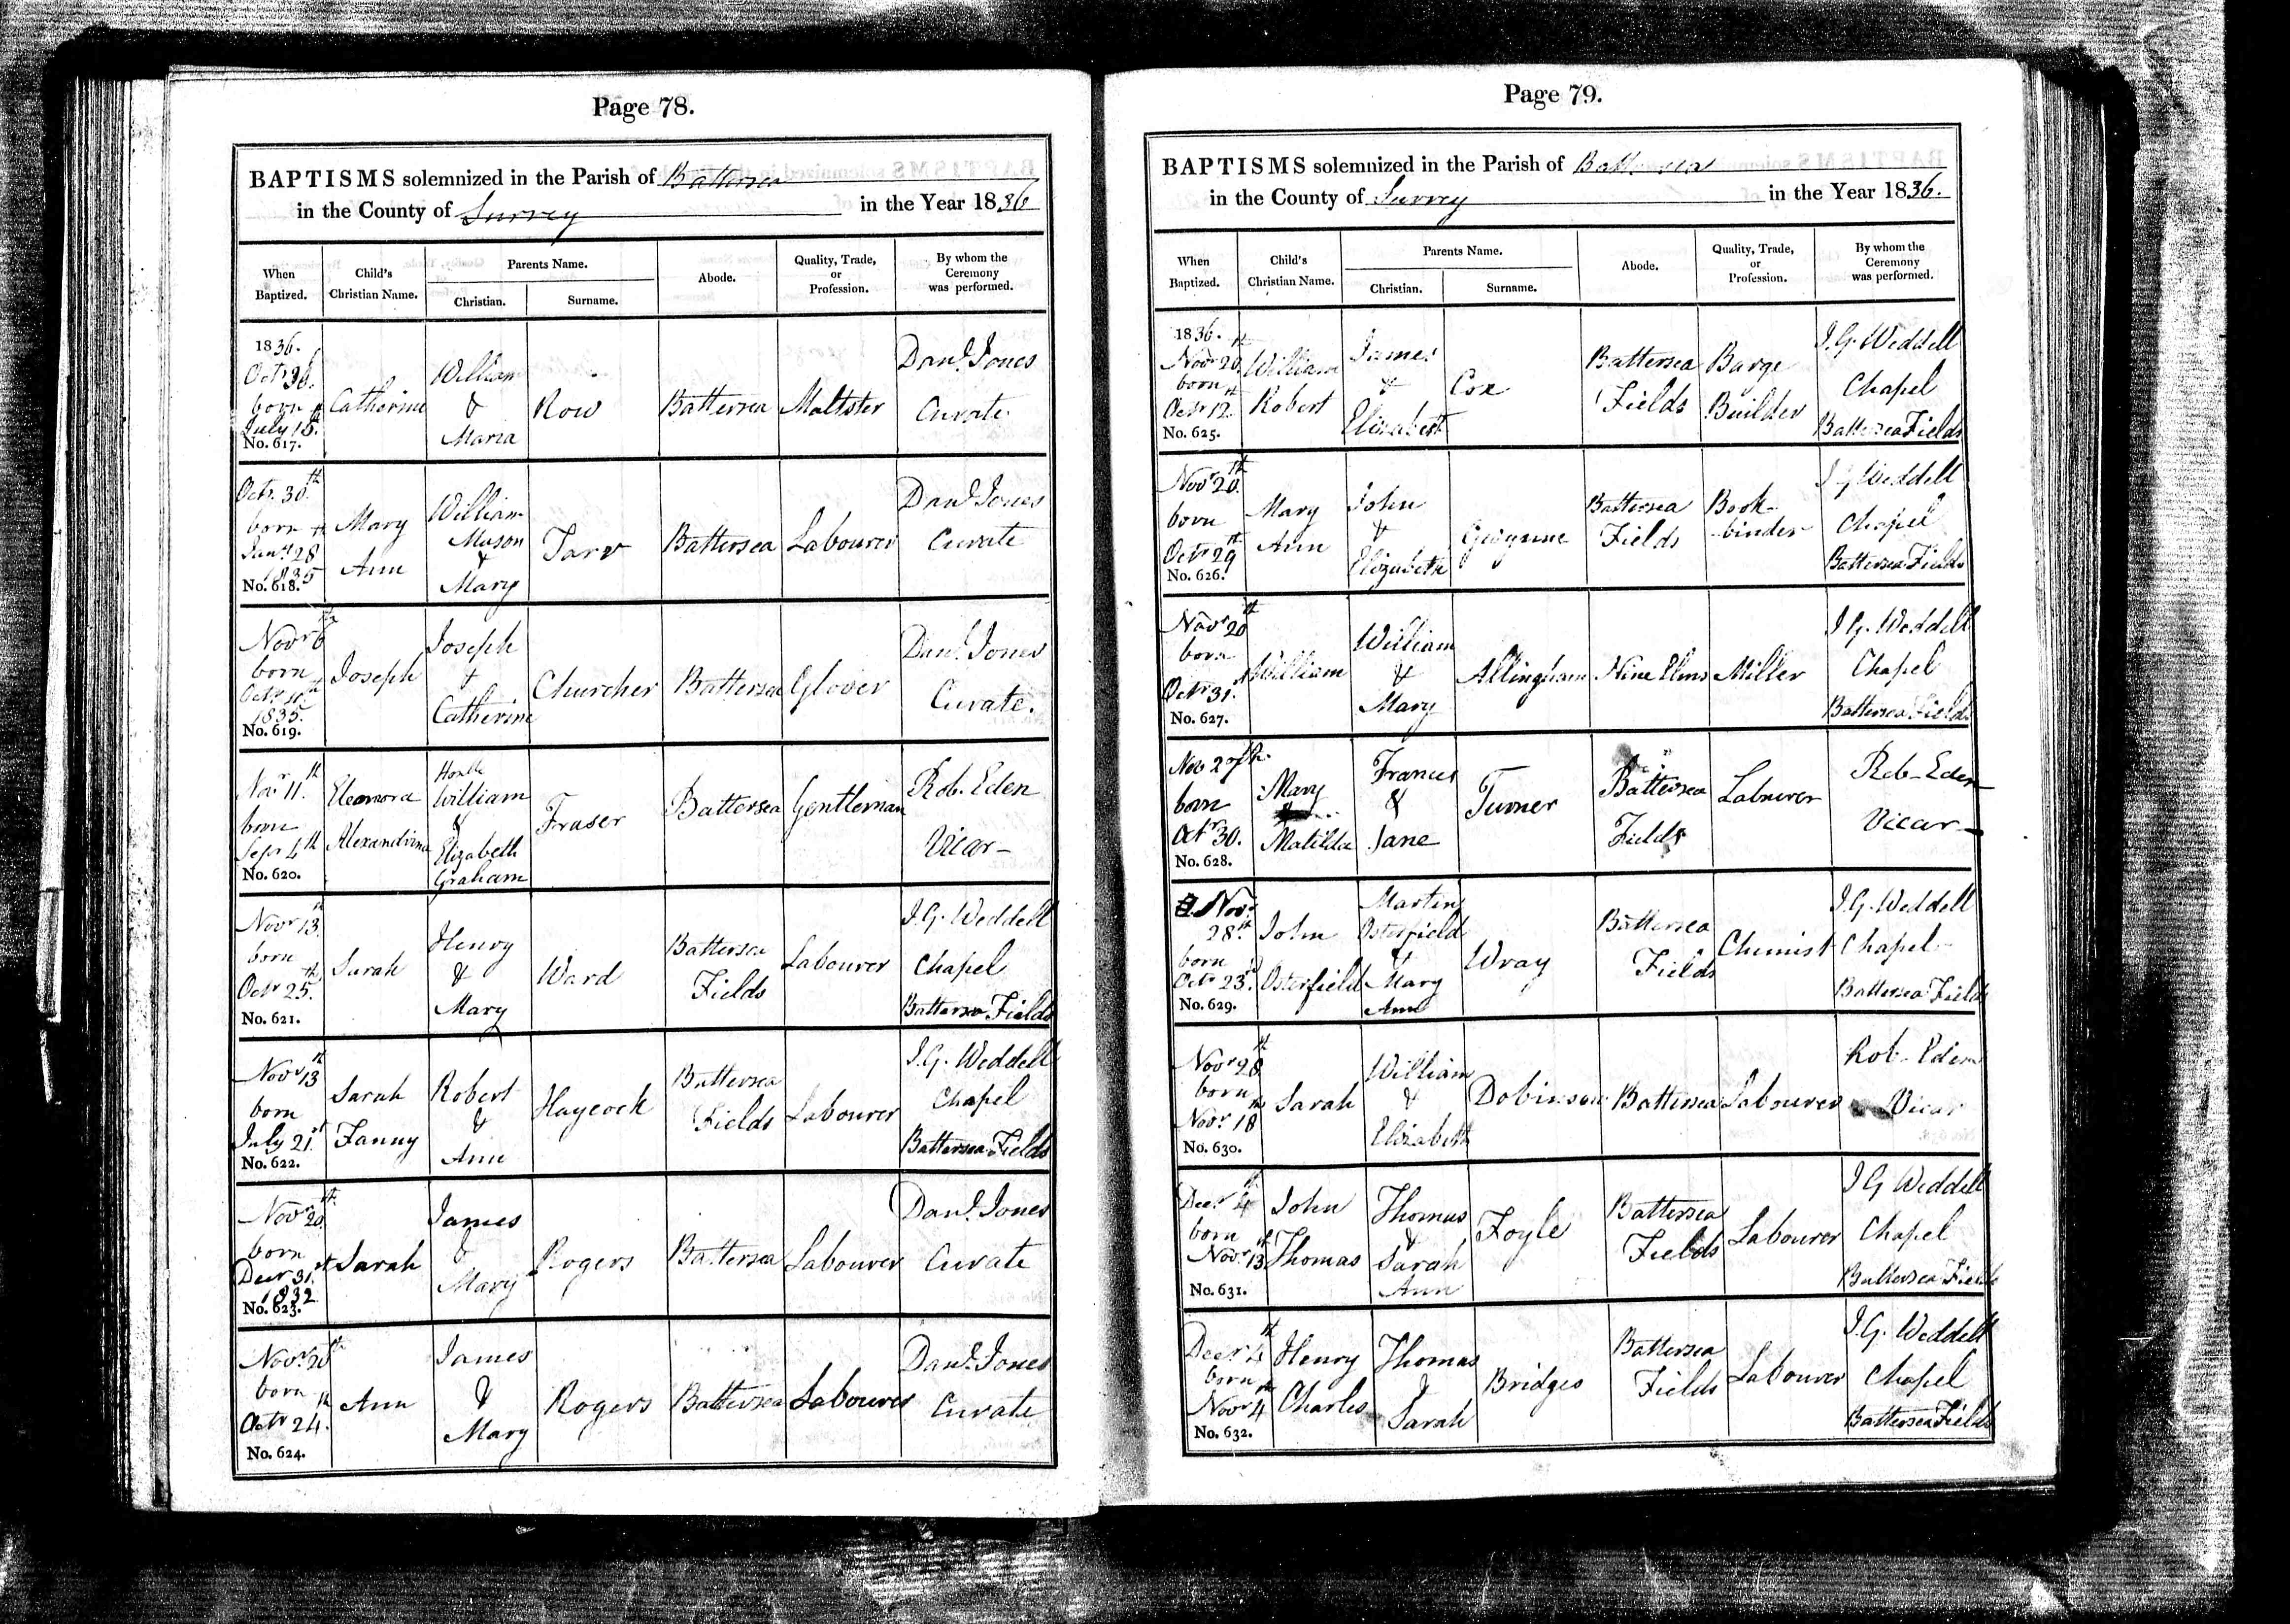 Page 78.
BAPTISMS solemnized in the Parish of Battersea
in the County of Surrey in the Year 1836
When Baptized. Child's Christian Name. Parents Name. Christian. Surname. Abode. Quality, Trade, or Profession. By whom the Ceremony was performed.
1836.
Octr 30.
born
July 15th
No. 617.
Catherine
William
&
Maria
Row
Battersea
Maltster
Danl. Jones
Curate.
Octr. 30th
born
Jany 28
1835
No. 618.
Mary
Ann
William
Mason
&
Mary
Battersea
Labourer
Danl Jones
Curate
Novr 6th
born
Octr
1835.
No. 619.
Joseph
Joseph
&
Catherine
Churcher
Battersea
Glover
Danl. Jones
Curate.
Novr 11th
born
Sepr 4th
No. 620.
Eleonora
Alexandrina
Honble
William
&
Elizabeth
Graham
Fraser
Battersea
Gentleman
Rob. Eden
Vicar-
Novr 13th
born
Octr 25th
No. 621.
Sarah
Henry
&
Mary
Ward
Battersea
Fields
Labourer
J. G. Weddell
Chapel
Battersea Fields
Novr 13th
born
July 21st
No. 622.
Sarah
Fanny
Robert
&
Ann
Haycock
Battersea
Fields
Labourer
J. G. Weddell
Chapel
Battersea Fields
Novr 20th
born
Decr 31st
1832
No. 623.
Sarah
James
&
Mary
Rogers
Battersea
Labourer
Danl. Jones
Curate
Novr 20th
born
Octr 24th
No. 624.
Ann
James
&
Mary
Rogers
Battersea
Labourer
Danl. Jones
Curate
Page 79.
BAPTISMS solemnized in the Parish of Battersea
in the County of Surrey in the Year 1836.
When Baptized. Child's Christian Name. Parents Name. Christian. Surname. Abode. Quality, Trade, or Profession. By whom the Ceremony was performed.
1836.
Novr 20th
born
Octr 12th
No. 625.
William
Robert
James
&
Elizabeth
Cox
Battersea
Fields
Barge
Builder
J. G. Weddell
Chapel
Battersea Fields
Novr 20th
born
Octr 29th
No. 626.
Mary
Ann
John
&
Elizabeth
Battersea
Fields
Book-
binder
J G Weddell
Chapel
Battersea Fields
Novr 20th
born
Octr 31st
No. 627.
William
William
&
Mary
Allingham
Nine Elms
Miller
J. G. Weddell
Chapel
Battersea Fields
Nov 27th.
born
Octr 30.
No. 628.
Mary
Matilda
Francis
&
Jane
Turner
Battersea
Fields
Labourer
Rob- Eden
Vicar-
Novr
28th
born
Octr 23rd
No. 629.
John
Osterfield
Martin
Osterfield
&
Mary
Ann
Wray
Battersea
Fields
Chemist
J. G. Weddell
Chapel
Battersea Fields
Novr 28th
born
Novr 18th
No. 630.
Sarah
William
&
Elizabeth
Dobinson
Battersea
Labourer
Rob- Eden
Vicar
Decr 4th
born
Novr 13th
No. 631.
John
Thomas
Thomas
&
Sarah
Ann
Foyle
Battersea
Fields
Labourer
J G Weddell
Chapel
Battersea Fields
Decr 4th
born
Novr 4th
No. 632.
Henry
Charles
Thomas
&
Sarah
Bridges
Battersea
Fields
Labourer
J. G. Weddell
Chapel
Battersea Fields